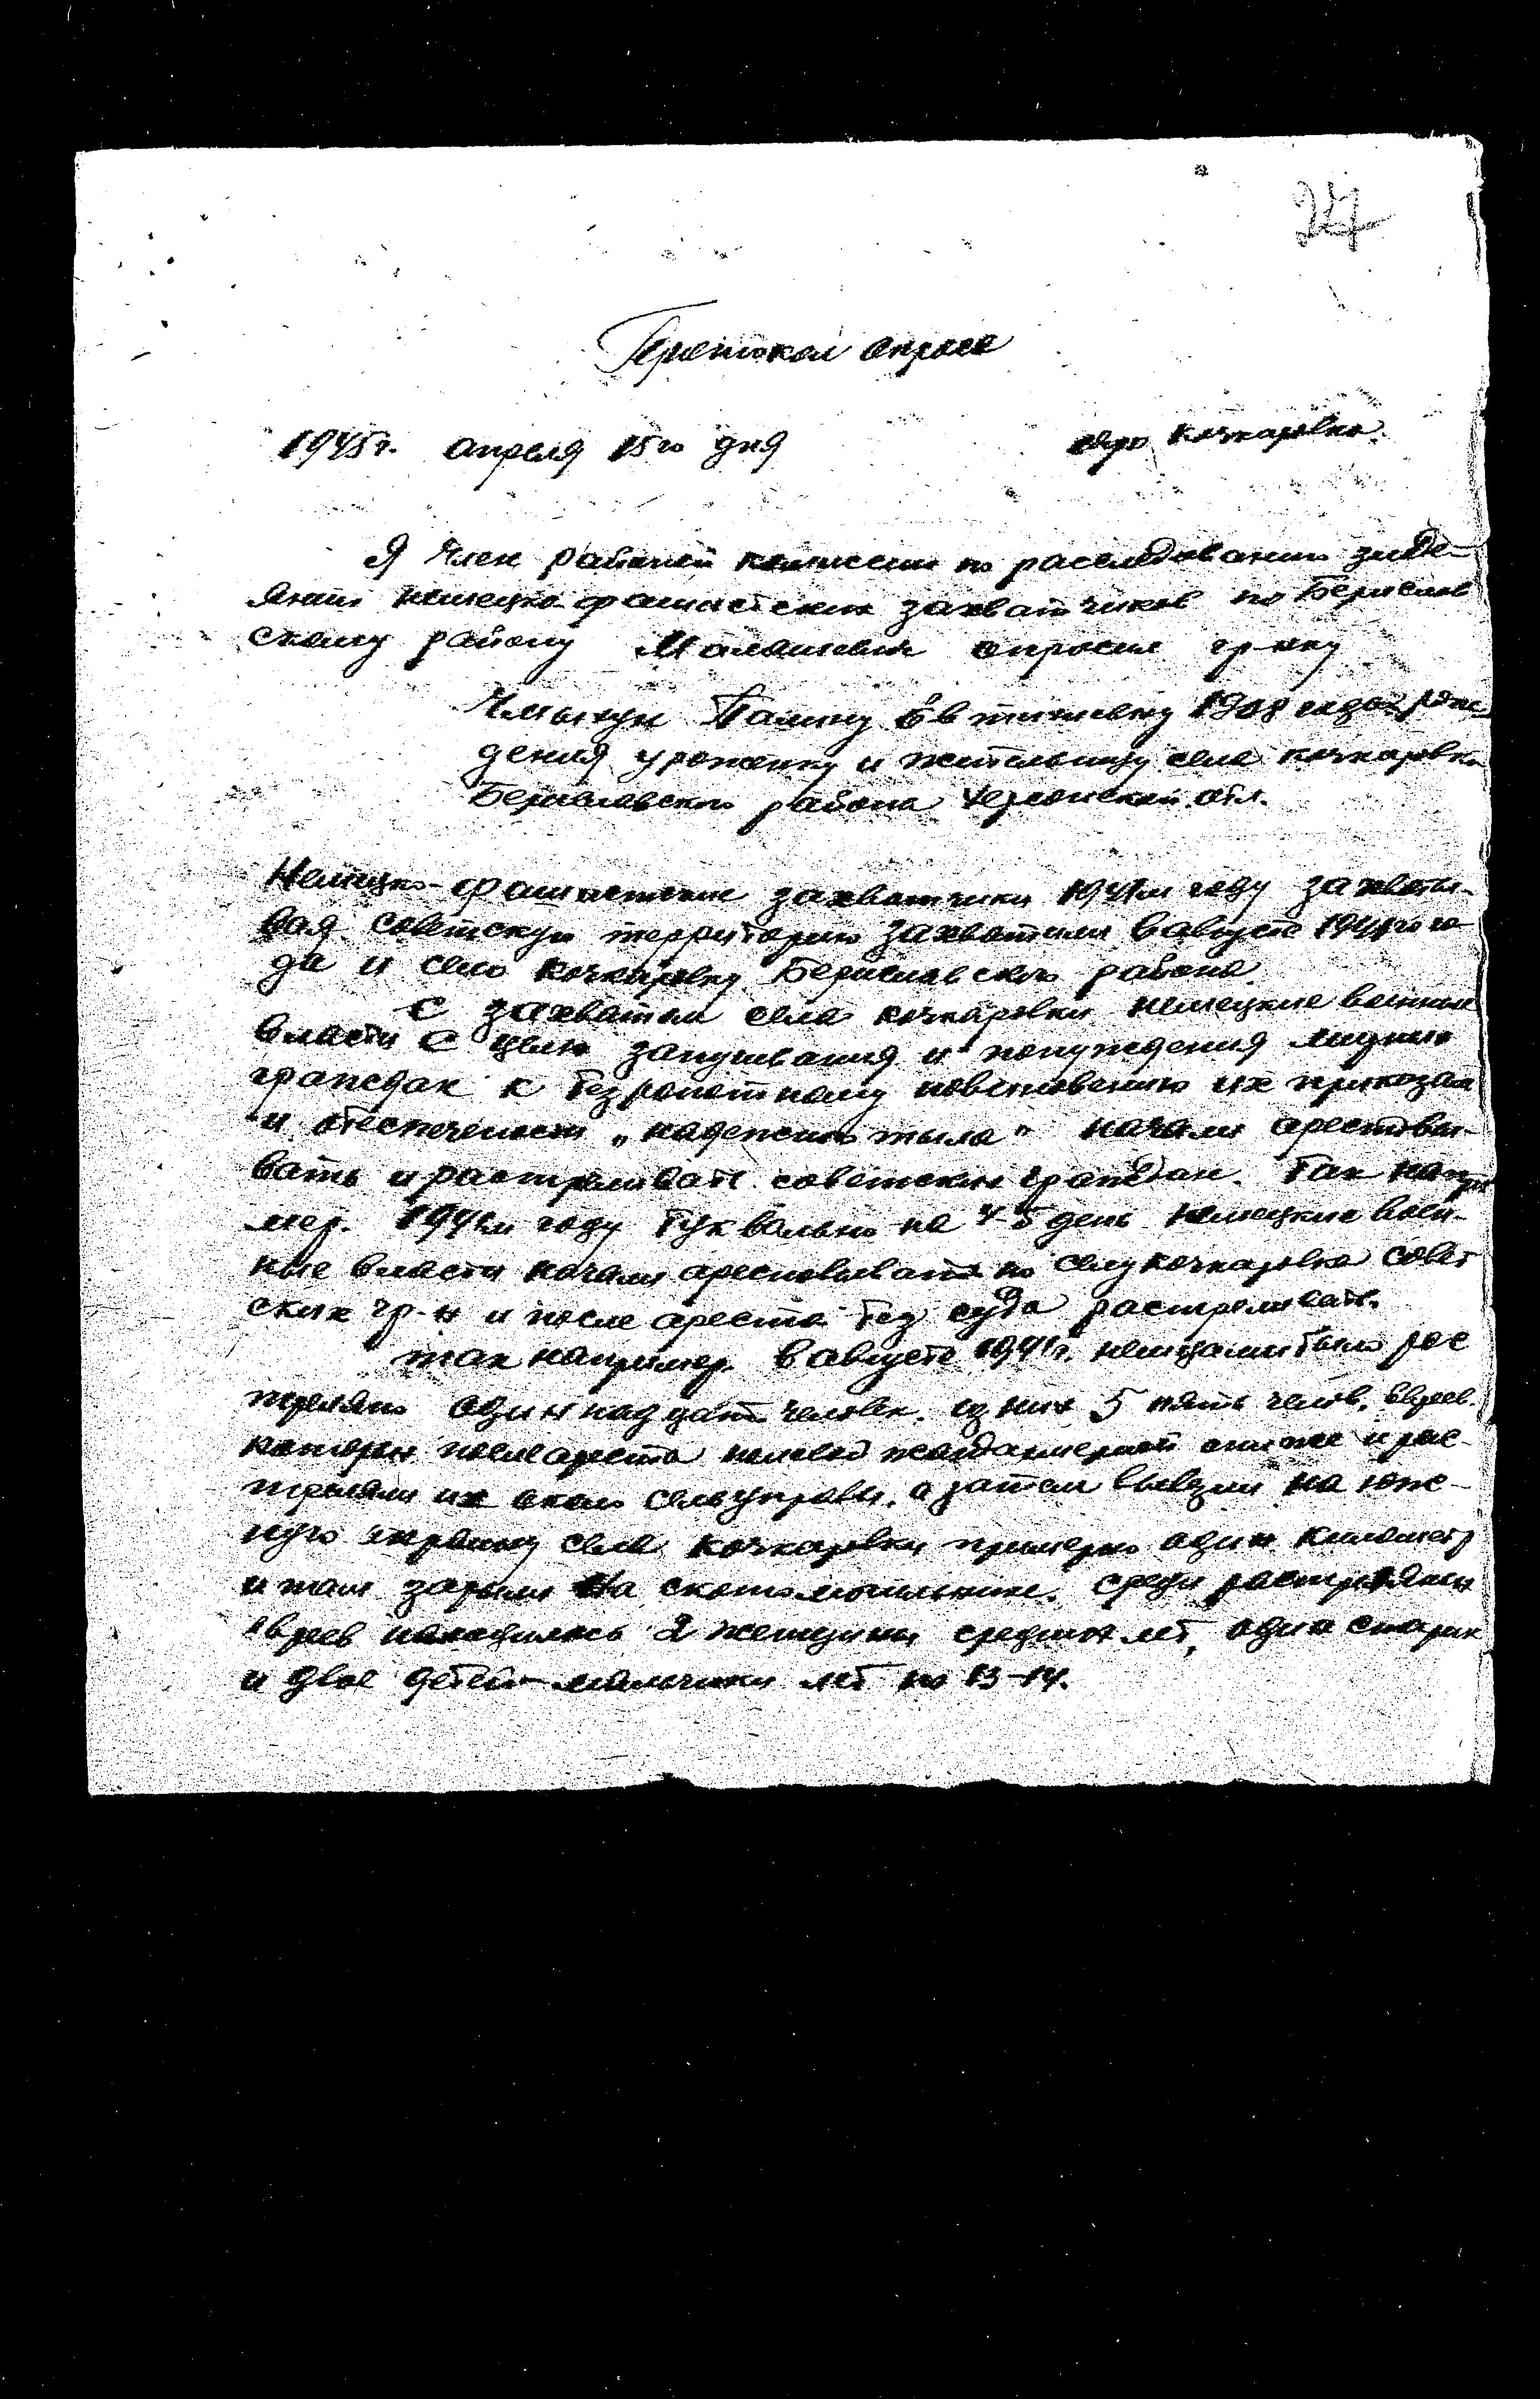 27
Протокол опроса
1945г. апреля 15го дня село Кочкаровка.
Я член районой комиссии по расследованию злоде-
яний немецко-фашистских захватчиков по Берислав
скому району опросил гр-нку
Полину 1908 года рож-
дения уроженку и жительницу села Кочкаровка
Бериславского района Херсонской обл.
Немецко-фашистские захватчики 1941м году захваты-
вая советскую территорию захватили в августе 1941го го-
да и село Кочкаровку Бериславского района
С захватом села Кочкаровки немецкие военные
власти с целью запугивания и понуждения мирных
граждан к безропотному повиновению их приказам
и обеспечености „надежного тыла" начали арестовы-
вать и растреливать советских граждан. Так напри
мер. 1941м году буквально на 4-5 день немецкие воен-
ные власти начали арестовывать по селу Кочкаровка совет
ских гр-н и после ареста без суда растреливать.
так например. в августе 1941г. немцами было рас
треляно одиннадцать человек. из них 5 пять челов. евреев.
которых после ареста жандармерией и рас-
треляли их около сельуправы, а затем вывезли на юж-
ную окраину села Кочкаровки примерно один километр
и там зарыли на скотомогильнике. среди растреляных
евреев находилось 2 женщины средних лет, один старик
и двое детей-мальчики лет по 13-14.